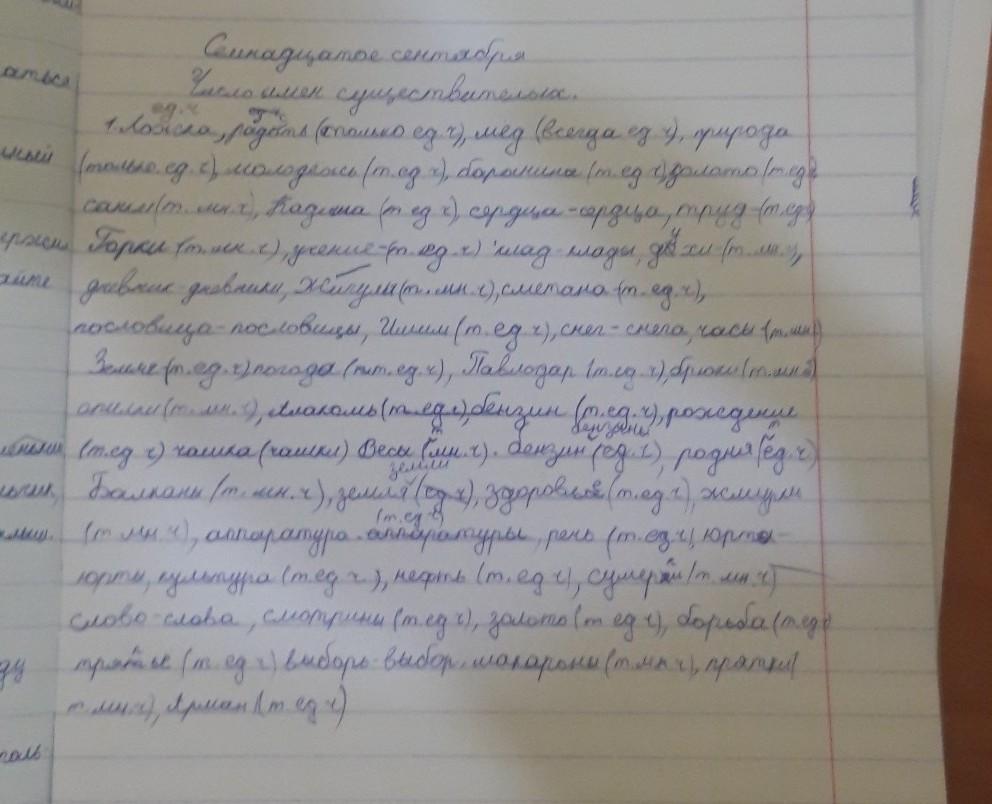 Семнадцатое сентября
Число имен существительных.
ед.ч
1. Ложка, радость (только ед.ч), мёд (всегда ед.ч), природа
(только ед.ч), молодёжь (т.ед.ч), баранина (т.ед ч) золото (т.ед
сани (т. мн.ч), (т.ед ч), сердца-сердца, труд-(т.ед
Горки (т.мн.ч), учение-(т.ед.ч) клад-клады, духи-(т.мн.ч),
дневник-дневники, Жигули (т.мн.ч), сметана-(т.ед.ч),
пословица-пословицы, Ишим (т.ед.ч), снег-снега, часы (т.мн
Земле (т.ед.ч) погода (т.ед.ч), Павлодар (т.ед.ч), брюки (т.мн
опилки (т.мн.ч), Алаколь (т.ед.ч), бензин (т.ед.ч), рождение
бензины
(т.ед ч) чашка (чашки) Весы (мн.ч). бензин (ед.ч), родня (ед.ч)
земли
Балканы (т.мн.ч), земля (ед.ч), здоровье (т.ед.ч), жмурки
(т.ед.ч)
(т.мн.ч), аппаратура-аппаратуры, речь (т.ед ч), юрта-
юрты, культура (т.ед.ч), нефть (т.ед ч), сумерки (т.мн.ч)
слово-слова, смотрины (т.ед ч), золото (т.ед ч), борьба (т.ед
(т.ед ч) выборы-выбор, макароны (т.мн ч), прятки (
т.мн.ч), Арман (т.ед ч)